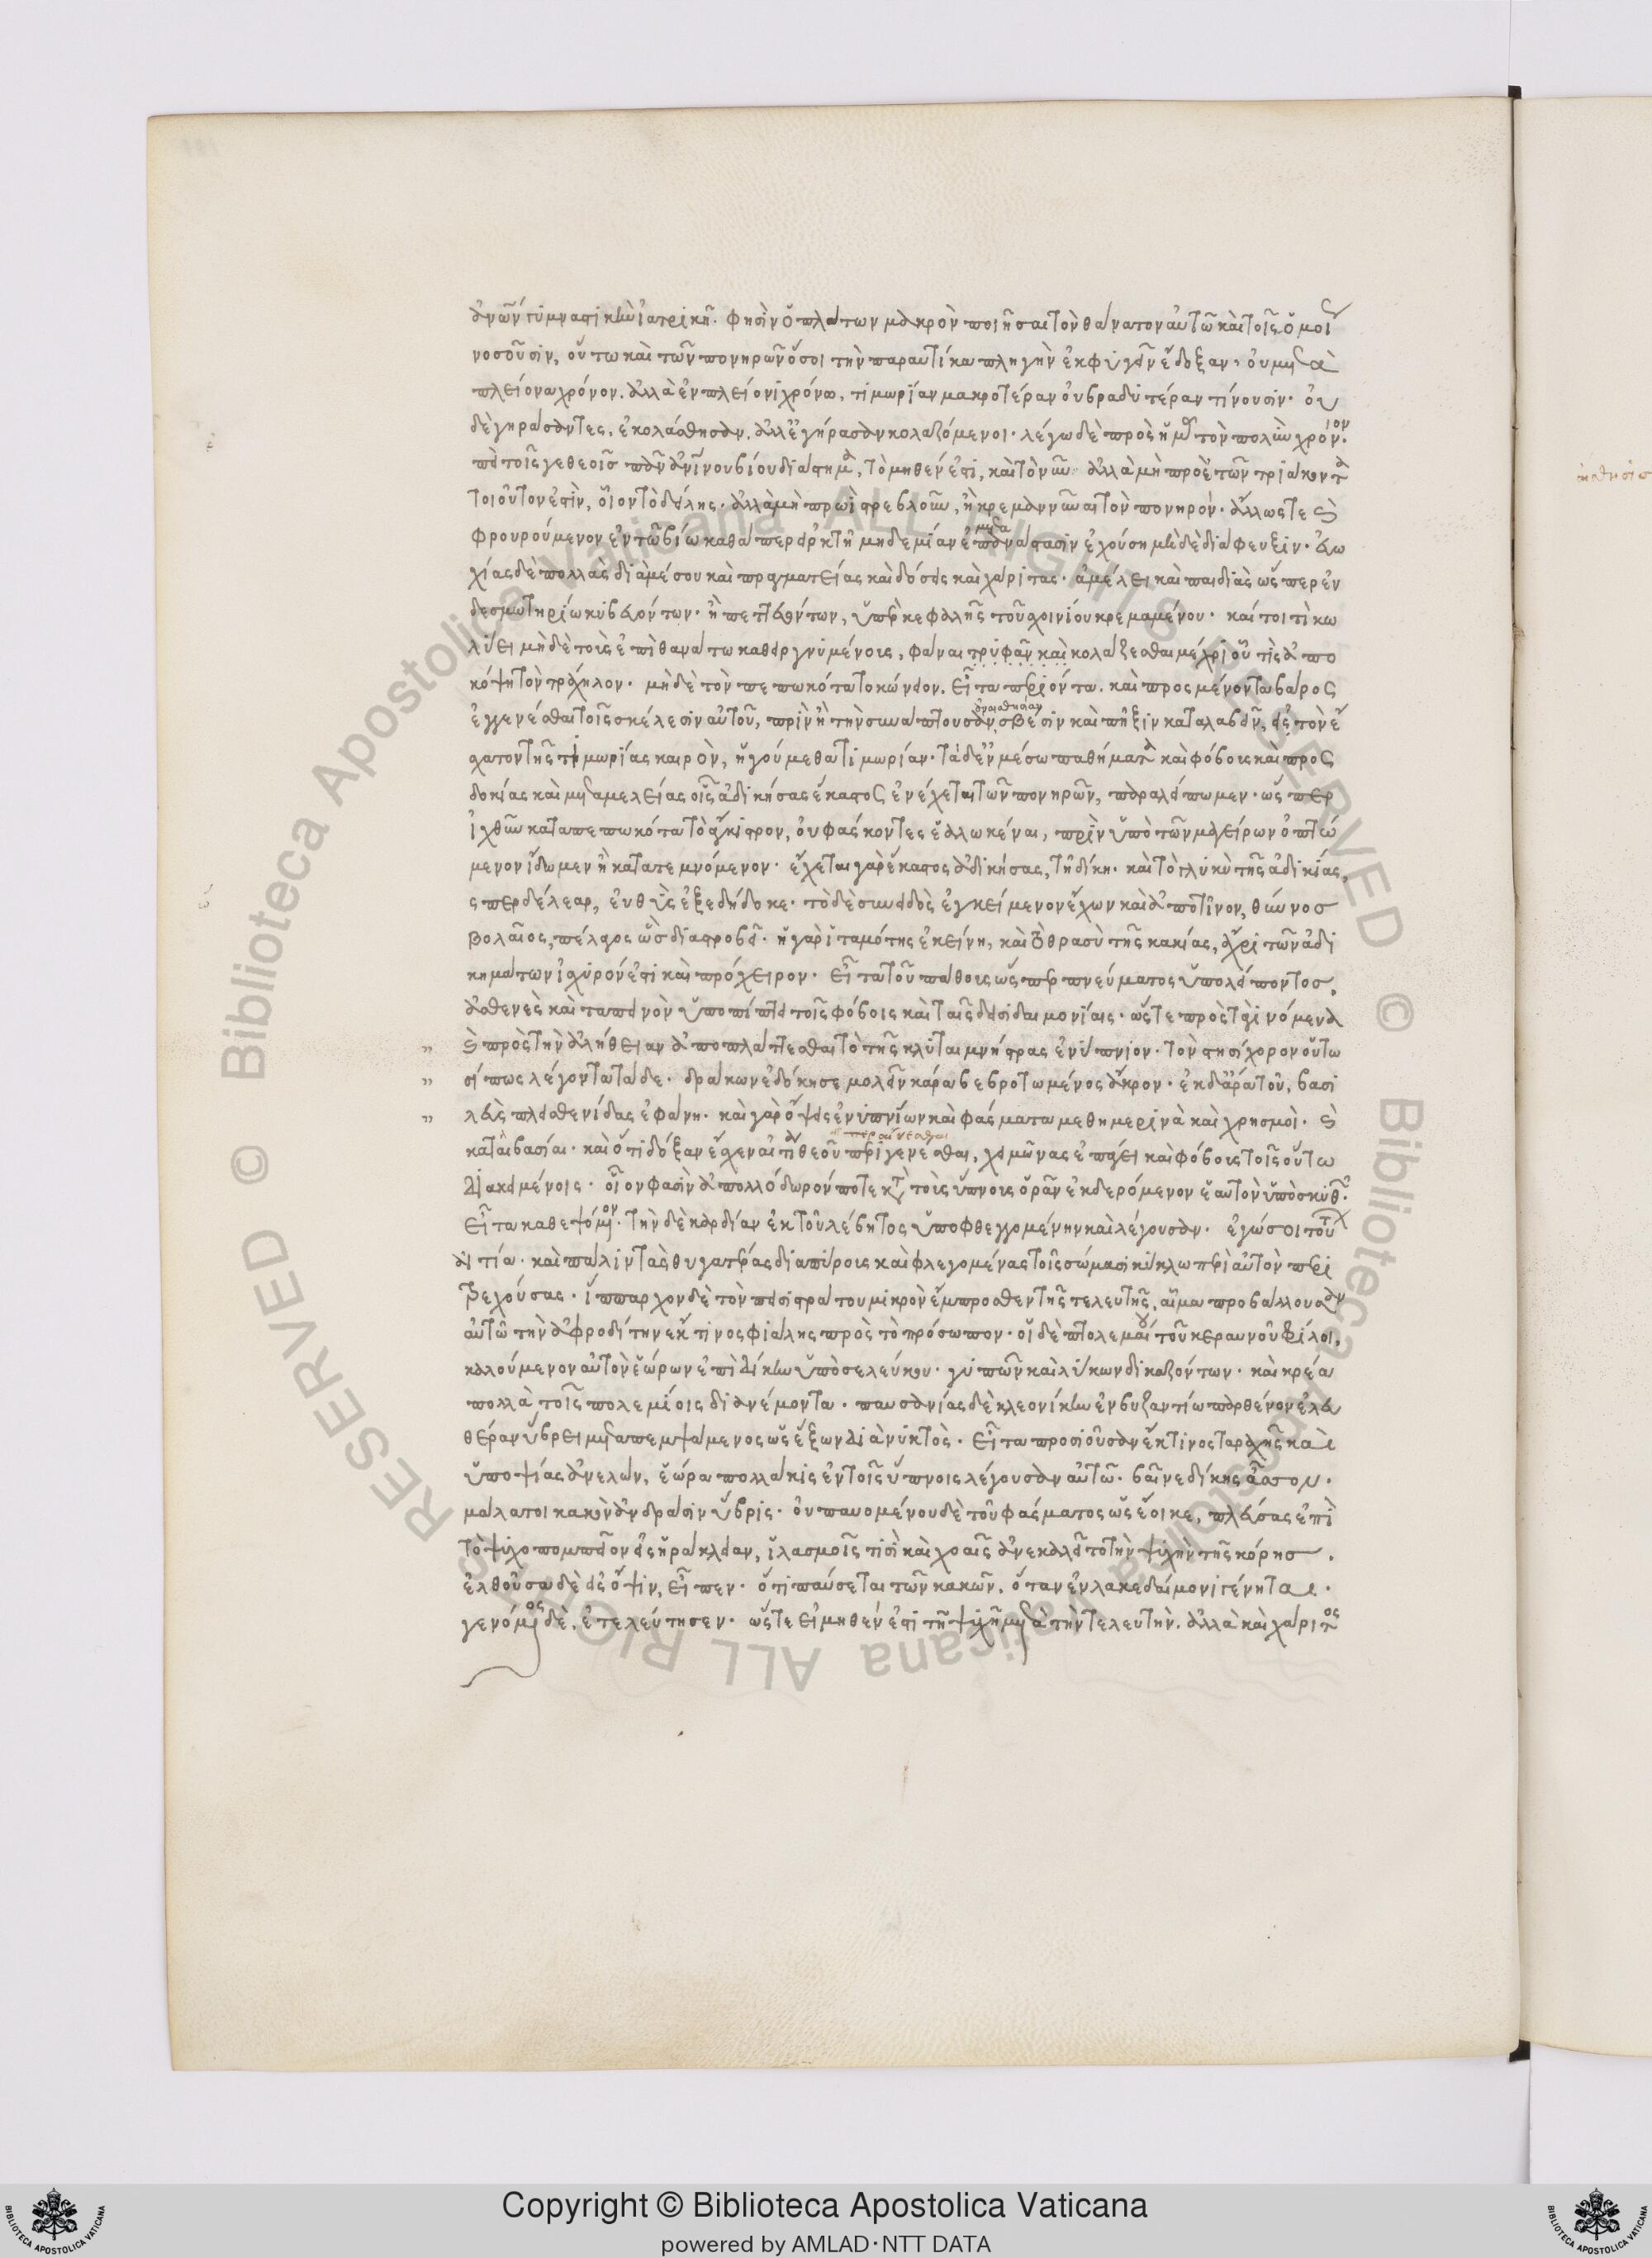 ἀνιῶν γυμναστικὴν ἰατρικῇ. φησὶν ὁ πλάτων μακρὸν ποιῆσαι τὸν θάνατον αὐτῷ καὶ τοῖς ὁμοί
νοσοῦσιν, οὕτω καὶ τῶν πονηρῶν ὅσοι τὴν παραυτίκα πληγὴν ἐκφυγεῖν ἔδοξαν, οὐ μετὰ
πλείονα χρόνον. ἀλλὰ ἐν πλείονι χρόνω, τιμωρίαν μακροτέραν οὐ βραδυτέραν τίνουσιν· οὐ
δὲ γηράσαντες, ἐκολάσθησαν. ἀλλ' ἐγήρασαν κολαζόμενοι. λέγω δὲ πρὸς ἡμᾶς τὸν πολὺν χρόνον.
ἐπεὶ τοῖς γε θεοῖς πᾶν ἀνθρωπίνου βίου διάστημα, τὸ μηθέν ἐστι, καὶ τὸ νῦν ἀλλὰ μὴ πρὸ ἐτῶν τριάκοντα
τοιοῦτον ἐστὶν, οἷον τὸ δείλης. ἀλλὰ μὴ πρωὶ στρεβλοῦν, ἢ κρεμαννύναι τὸν πονηρόν. ἄλλως τε καὶ
φρουρούμενον ἐν τῷ βίῳ καθάπερ εἱρκτῇ μηδεμίαν μετανάστασιν ἐχούσῃ μὴδὲ διάφευξιν. εὐω
χίας δὲ πολλὰς διὰ μέσου καὶ πραγματείας καὶ δόσεις καὶ χάριτας. ἀμέλει καὶ παιδιὰς ὥσπερ ἐν
δεσμωτηρίω κυβευόντων. ἢ πεττευόντων, ὑπὲρ κεφαλῆς τοῦ σχοινίου κρεμαμένου. καίτοι τί κω
λύει μὴδὲ τοὺς ἐπὶ θανάτω καθειργνυμένους, φάναι τρυφᾶν καὶ κολάζεσθαι μέχρι οὗ τις ἀπο
κόψῃ τὸν τράχηλον. μὴδὲ τὸν πεπωκότα τὸ κώνειον. εἶτα περιιόντα. καὶ προσμένοντα βάρος
ἐγγενέσθαι τοῖς σκέλεσιν αὐτοῦ, πρὶν ἢ τὴν συνάπτουσαν ἀναισθησίαν σβέσιν καὶ πῆξιν καταλαβεῖν, εἰ τὸν ἔ
σχατον τῆς τιμωρίας καιρὸν, ἡγούμεθα τιμωρίαν. τὰ δ' ἐν μέσω παθήματα καὶ φόβους καὶ προς
δοκίας καὶ μεταμελείας οἷς ἀδικήσας ἕκαστος ἐνέχεται τῶν πονηρῶν, παραλείπωμεν. ὥσπερ
ἰχθὺν καταπεπωκότα τὸ ἄγκιστρον, οὐ φάσκοντες ἑαλωκέναι, πρὶν ὑπὸ τῶν μαγείρων ὀπτώ
μενον ἴδωμεν ἢ κατατεμνόμενον. ἔχεται γὰρ ἕκαστος ἀδικήσας, τῇ δίκῃ. καὶ τὸ γλυκὺ τῆς ἀδικίας,
ὥσπερ δέλεαρ, εὐθὺς ἐξεδήδοκε. τὸ δὲ συνειδὸς ἐγκείμενον ἔχων καὶ ἀποτῖνον, θύννος
βολαῖος, πέλαγος ὣς διαστροβεῖ. ἡ γὰρ ἰταμότης ἐκείνη, καὶ τὸ θρασὺ τῆς κακίας, ἄχρι τῶν ἀδι
κημάτων ἰσχυρόν ἐστι καὶ πρόχειρον. εἶτα τοῦ πάθους ὥσπερ πνεύματος ὑπολείποντος,
ἀσθενὲς καὶ ταπεινὸν ὑποπίπτει τοῖς φόβοις καὶ ταῖς δεισιδαιμονίαις. ὥστε πρὸς τὰ γινόμενα
καὶ πρὸς τὴν ἀλήθειαν ἀποπλάττεσθαι τὸ τῆς κλυταιμνήστρας ἐνύπνιον. τὸν στησίχορον οὕτω
σί πως λέγοντα τάδε. δράκων ἐδόκησε μολεῖν κάρα βεβροτωμένος ἄκρον. ἐκ δ' ἄρα τοῦ, βασι
λεὺς πλεισθενίδας ἐφάνη. καὶ γὰρ ὄψεις ἐνυπνίων καὶ φάσματα μεθημερινὰ καὶ χρησμοὶ. καὶ
καταιβασίαι. καὶ ὅ τι δόξαν ἔσχεν αἰτίᾳ θεοῦ περιγενέσθαι, χειμῶνας ἐπάγει καὶ φόβους τοῖς οὕτω
διακειμένοις. οἷον φασὶν ἀπολλόδωρόν ποτε κατὰ τοὺς ὕπνους ὁρᾶν ἐκδερόμενον ἑαυτὸν ὑπὸ σκυθῶν.
εἶτα καθεψόμενον. τὴν δὲ καρδίαν ἐκ τοῦ λέβητος ὑποφθεγγομένην καὶ λέγουσαν. ἐγώ σοι τούτων
αἰτία. καὶ πάλιν τὰς θυγατέρας διαπύρους καὶ φλεγομένας τοῖς σώμασι κύκλω περὶ αὐτὸν περι
τρεχούσας. ἵππαρχον δὲ τὸν πεισιστράτου μικρὸν ἔμπροσθεν τῆς τελευτῆς, αἷμα προσβάλλουσαν
αὐτῷ τὴν ἀφροδίτην ἔκ τινος φιάλης πρὸς τὸ πρόσωπον. οἱ δὲ πτολεμαίου τοῦ κεραυνοῦ φίλοι,
καλούμενον αὐτὸν ἑώρων ἐπὶ δίκην ὑπὸ σελεύκου. γυπῶν καὶ λύκων δικαζόντων. καὶ κρέα
πολλὰ τοῖς πολεμίοις διανέμοντα. παυσανίας δὲ κλεονίκην ἐν βυζαντίω παρθένον ἐλευ
θέραν ὕβρει μεταπεμψάμενος ὡς ἕξων διὰ νυκτὸς. εἶτα προσιοῦσαν ἔκ τινος ταραχῆς καὶ
ὑποψίας ἀνελών, ἑώρα πολλάκις ἐν τοῖς ὕπνοις λέγουσαν αὐτῷ. βαῖνε δίκης ἆσσον.
μάλα τοι κακὸν ἀνδράσιν ὕβρις. οὐ παυομένου δὲ τοῦ φάσματος ὡς ἔοικε, πλεύσας ἐπὶ
τὸ ψυχοπομπεῖον εἰς ἡράκλειαν, ἱλασμοῖς τισὶ καὶ χοαῖς ἀνεκαλεῖτο τὴν ψυχὴν τῆς κόρης.
ἐλθοῦσα δὲ εἰς ὄψιν, εἶπεν. ὅτι παύσεται τῶν κακῶν, ὅταν ἐν λακεδαίμονι γένηται.
γενόμενος δὲ, ἐτελεύτησεν. ὥστε εἰ μηθέν ἐστι τῇ ψυχῇ μετὰ τὴν τελευτὴν. ἀλλὰ καὶ χάριτος
Copyright © Biblioteca Apostolica Vaticana
powered by AMLAD·NTT DATA